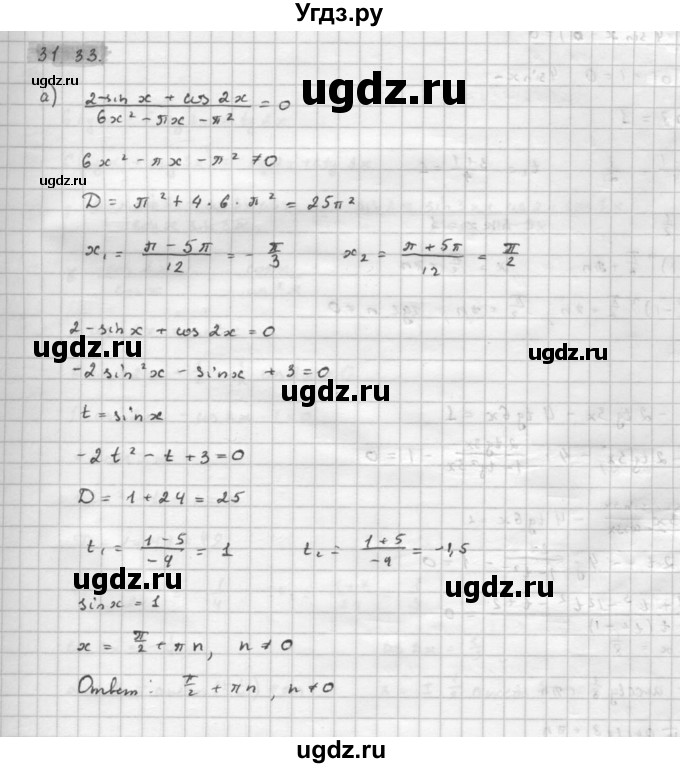 Угдз.ру
31 33.
ugdz.ru ugdz.ru
а) (2 - sin x + cos 2x) / (6x² - πx - π²) = 0
6x² - πx - π² ≠ 0
ugdz.ru
D = π² + 4·6·π² = 25π²
x₁ = (π - 5π) / 12 = - π/3 x₂ = (π + 5π) / 12 = π/2
2 - sin x + cos 2x = 0
ugdz.ru ugdz.ru
-2 sin²x - sin x + 3 = 0
ugdz.ru
t = sin x
-2t² - t + 3 = 0
D = 1 + 24 = 25
t₁ = (1 - 5) / -4 = 1 t₂ = (1 + 5) / -4 = -1,5
ugdz.ru ugdz.ru
sin x = 1
x = π/2 + πn, n ≠ 0
Ответ: π/2 + πn, n ≠ 0
ugdz.ru